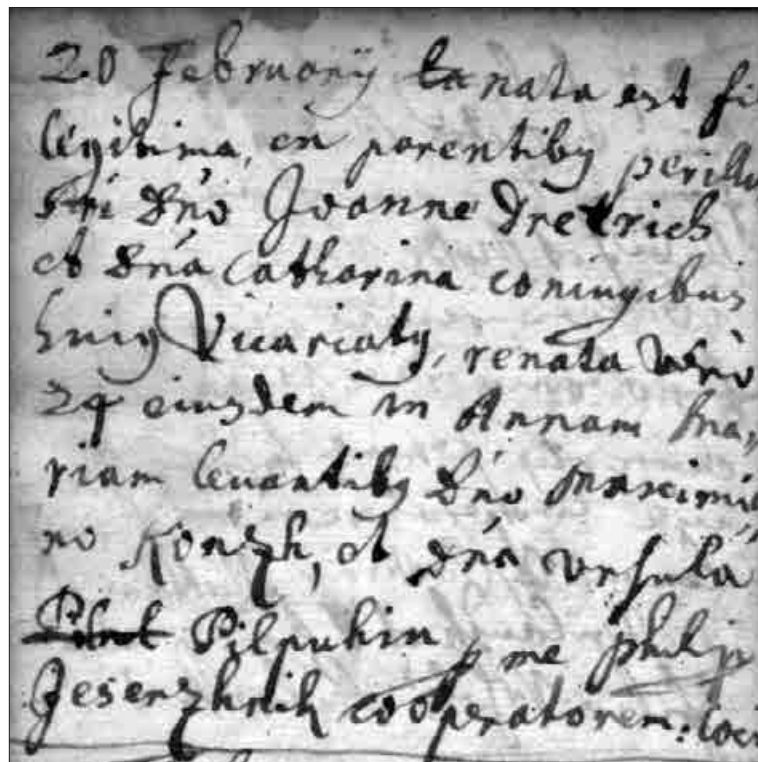 20 Februarÿ nata est fi
legitima, ex parentibg perillu
stri Dño Joanne Dietrich
et Dña Catharina coniugibus
huig Vicariatg, renata vero
24 eiusdem in Annam Ma,
riam levantibg Dño Maximi
no Konzh, et Dña Ursula
Pilpukin p me philip
Jeserzhnik cooperatorem: loci